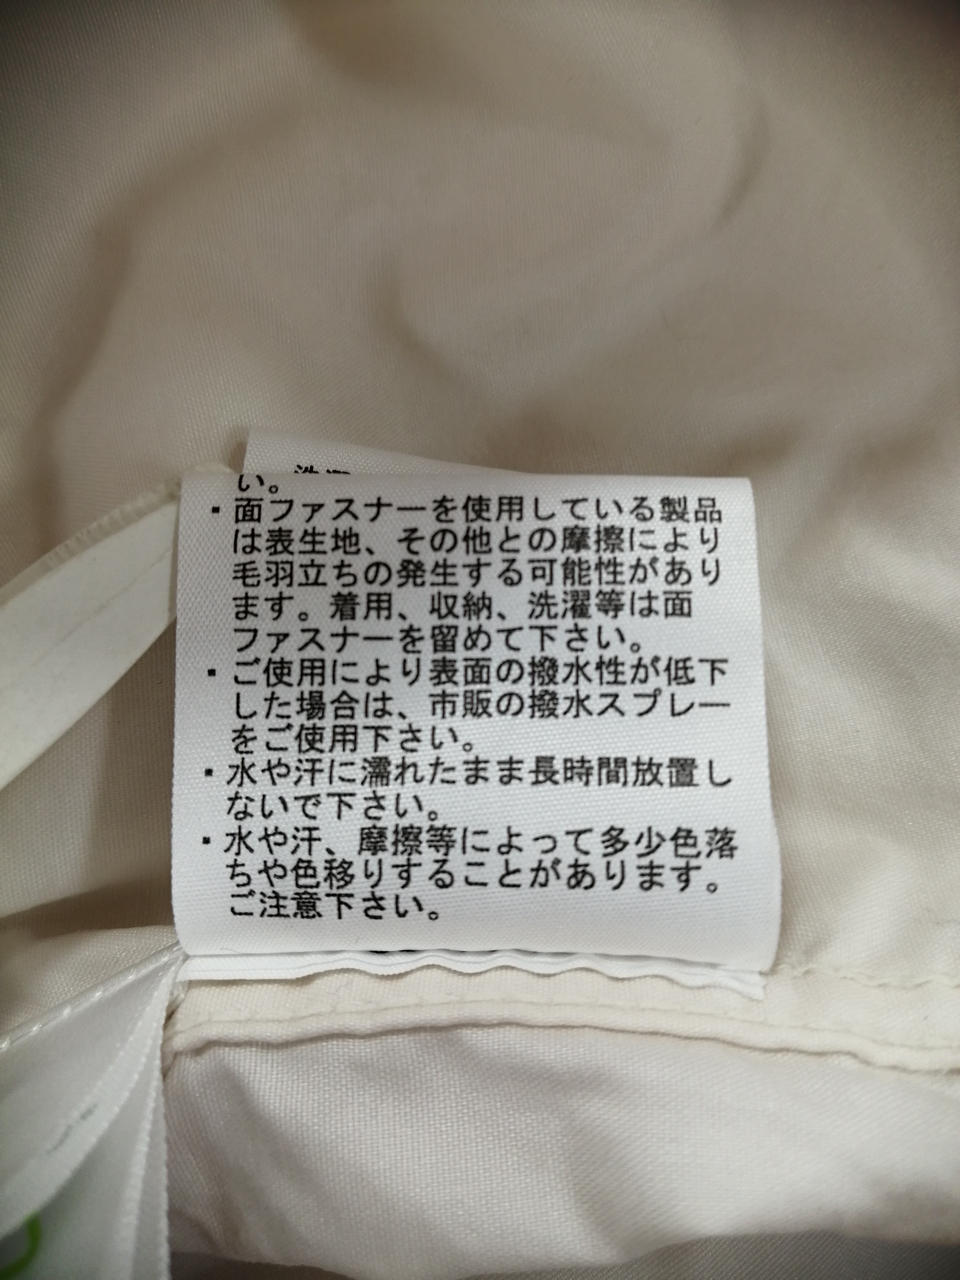 い。
・面ファスナーを使用している製品
は表生地、その他との摩擦により
毛羽立ちの発生する可能性があり
ます。着用、収納、洗濯等は面
ファスナーを留めて下さい。
・ご使用により表面の撥水性が低下
した場合は、市販の撥水スプレー
をご使用下さい。
・水や汗に濡れたまま長時間放置し
ないで下さい。
・水や汗、摩擦等によって多少色落
ちや色移りすることがあります。
ご注意下さい。